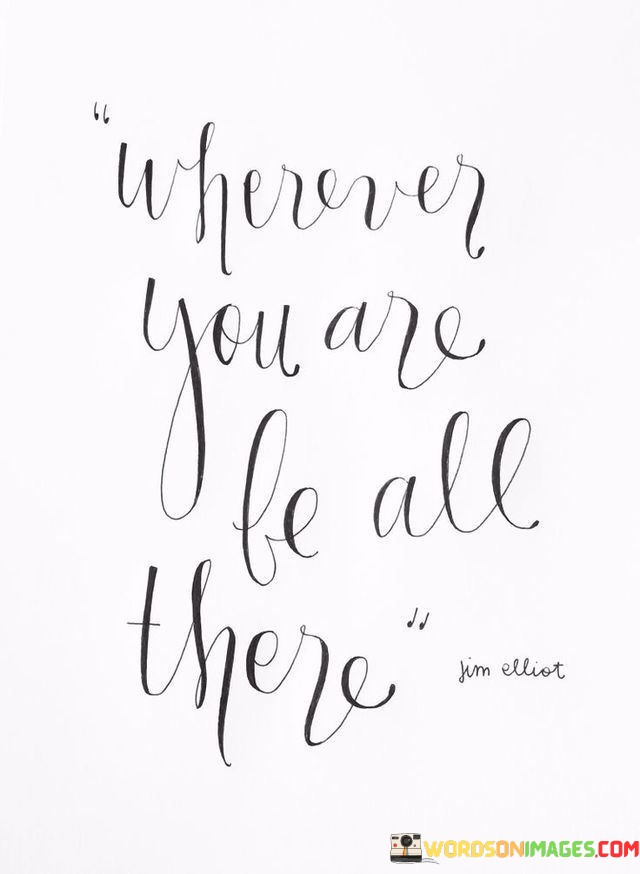 “wherever
you are
be all
there”
jim elliot
WORDSONIMAGES.COM